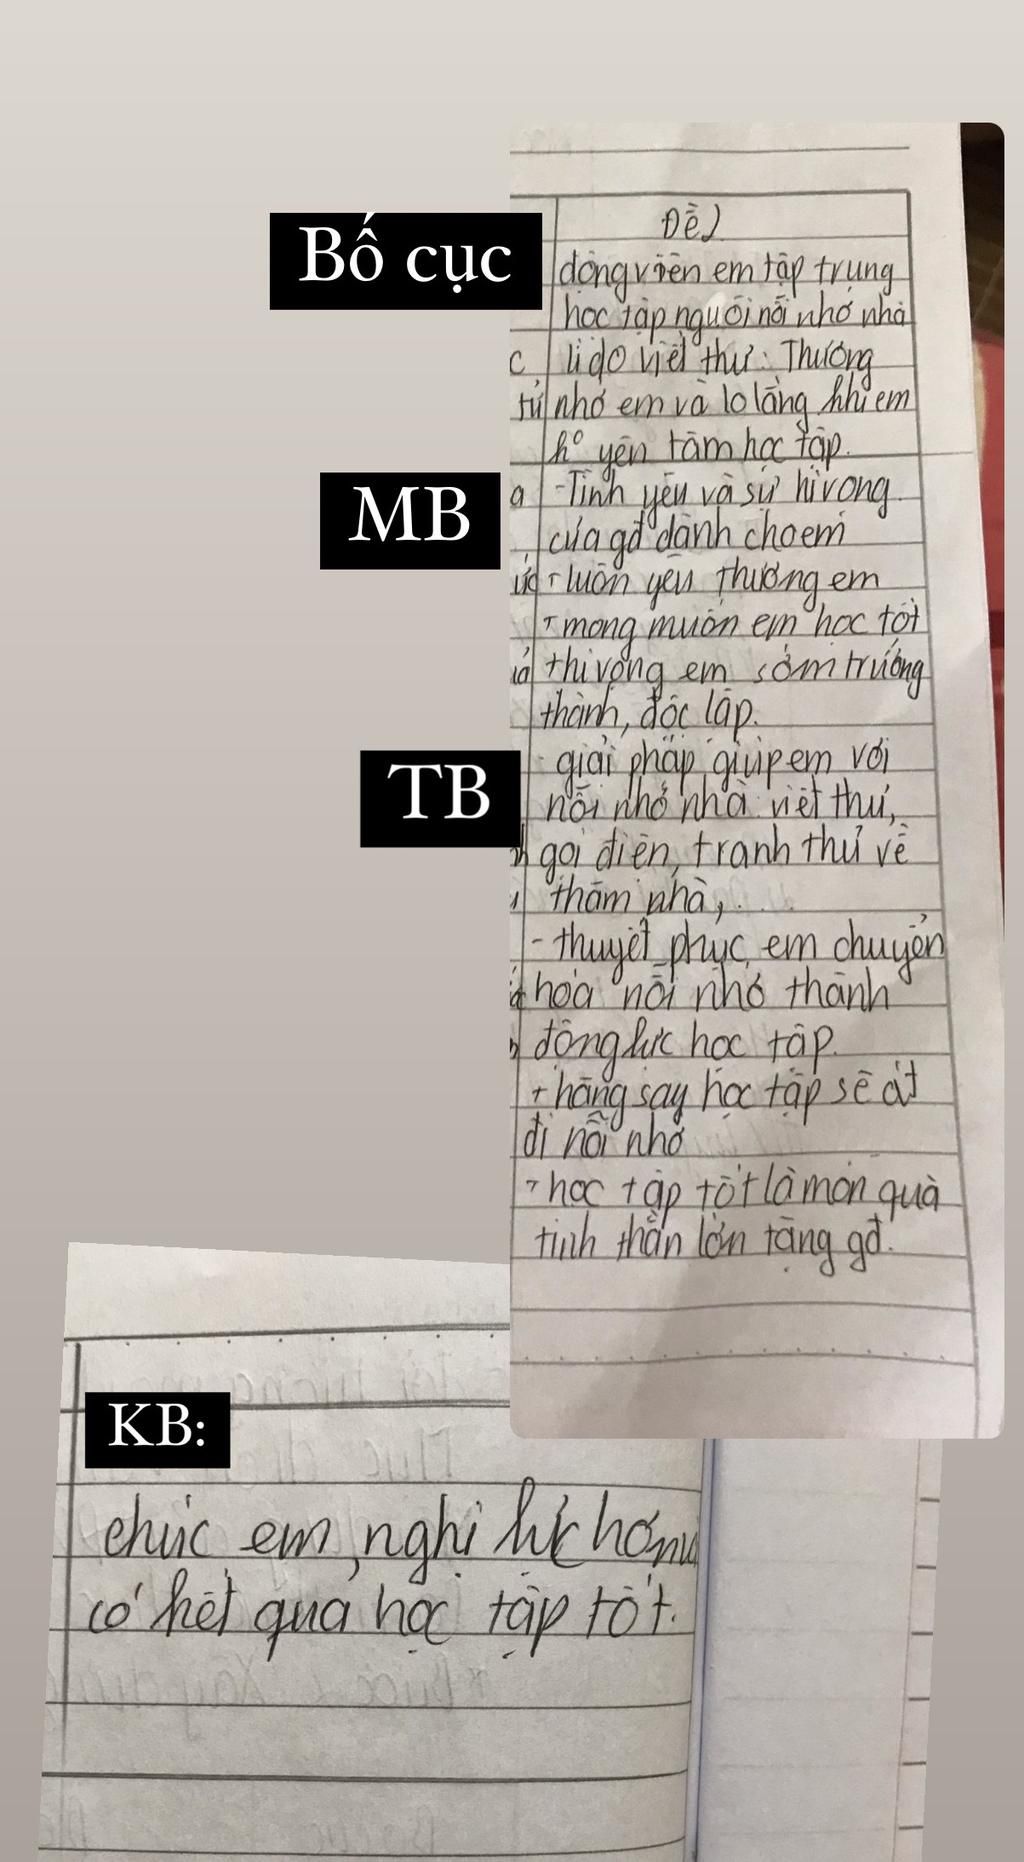 Bố cục
Đề 2
động viên em tập trung
học tập nguôi nỗi nhớ nhà
c lí do viết thư: Thương
tủ nhớ em và lo lắng khi em
k° yên tâm học tập.
MB
a - Tình yêu và sự hi vọng
của gđ dành cho em
ức + luôn yêu thương em
+ mong muốn em học tốt
+ hi vọng em sớm trưởng
thành, độc lập.
TB
- giải pháp giúp em với
nỗi nhớ nhà: viết thư,
gọi điện, tranh thủ về
thăm nhà,...
- thuyết phục em chuyển
hoá nỗi nhớ thành
động lực học tập.
+ hăng say học tập sẽ át
đi nỗi nhớ
+ học tập tốt là món quà
tinh thần lớn tặng gđ.
KB:
chúc em nghị lực hơn,
có kết quả học tập tốt.